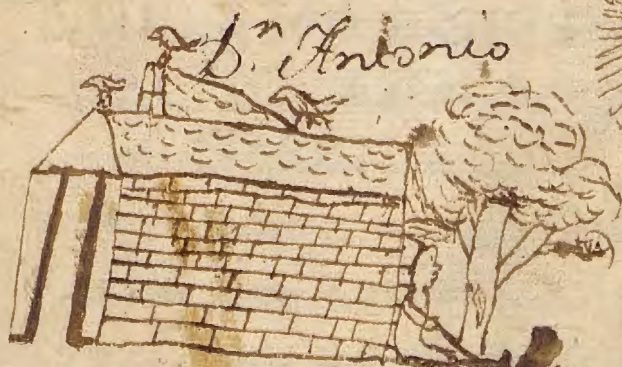 Dn Antonio